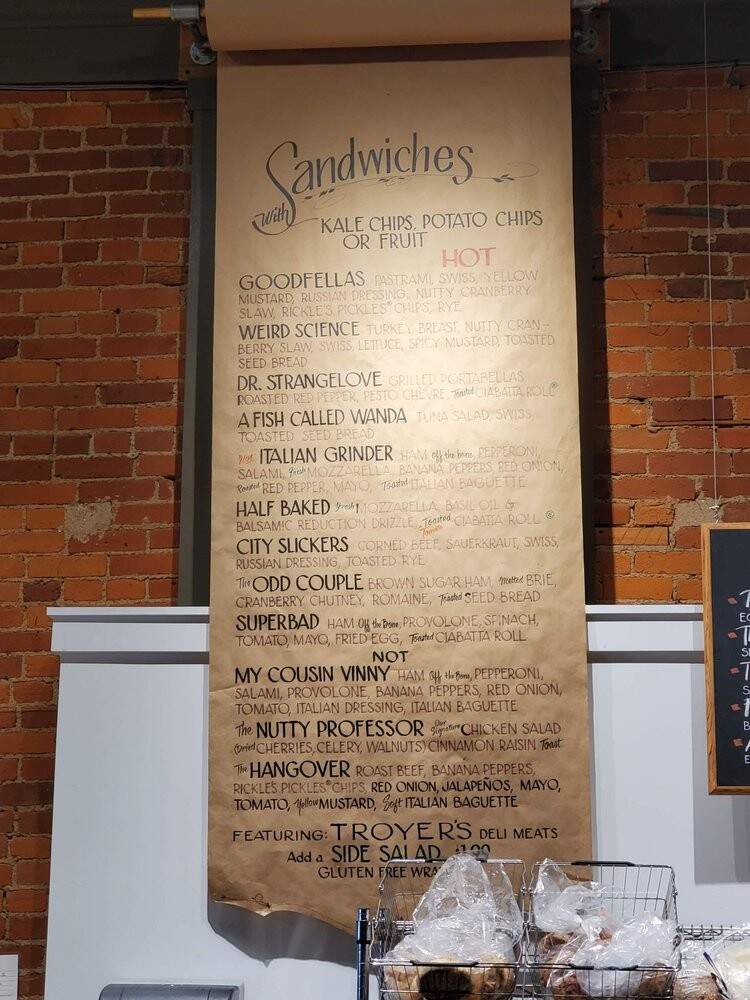 Sandwiches
with KALE CHIPS, POTATO CHIPS
OR FRUIT
HOT
GOODFELLAS PASTRAMI, SWISS, YELLOW
MUSTARD, RUSSIAN DRESSING, NUTTY CRANBERRY
SLAW, RICKLE'S PICKLES® CHIPS, RYE
WEIRD SCIENCE TURKEY BREAST, NUTTY CRAN-
BERRY SLAW, SWISS, LETTUCE, SPICY MUSTARD, TOASTED
SEED BREAD
DR. STRANGELOVE GRILLED PORTABELLAS,
ROASTED RED PEPPER, PESTO CHEVRE, Toasted CIABATTA ROLL
A FISH CALLED WANDA TUNA SALAD, SWISS,
TOASTED SEED BREAD
ITALIAN GRINDER HAM off the bone, PEPPERONI,
SALAMI, fresh MOZZARELLA, BANANA PEPPERS, RED ONION,
Roasted RED PEPPER, MAYO, Toasted ITALIAN BAGUETTE
HALF BAKED fresh MOZZARELLA, BASIL OIL &
BALSAMIC REDUCTION DRIZZLE, Toasted CIABATTA ROLL
Tomato
CITY SLICKERS CORNED BEEF, SAUERKRAUT, SWISS,
RUSSIAN DRESSING, TOASTED RYE
The ODD COUPLE BROWN SUGAR HAM, Melted BRIE,
CRANBERRY CHUTNEY, ROMAINE, Toasted SEED BREAD
SUPERBAD HAM Off the Bone, PROVOLONE, SPINACH,
TOMATO, MAYO, FRIED EGG, Toasted CIABATTA ROLL
NOT
MY COUSIN VINNY HAM Off the Bone, PEPPERONI,
SALAMI, PROVOLONE, BANANA PEPPERS, RED ONION,
TOMATO, ITALIAN DRESSING, ITALIAN BAGUETTE
The NUTTY PROFESSOR Our Signature CHICKEN SALAD
(Dried CHERRIES, CELERY, WALNUTS) CINNAMON RAISIN Toast
The HANGOVER ROAST BEEF, BANANA PEPPERS,
RICKLE'S PICKLES® CHIPS, RED ONION, JALAPEÑOS, MAYO,
TOMATO, Yellow MUSTARD, Soft ITALIAN BAGUETTE
FEATURING: TROYER'S DELI MEATS
Add a SIDE SALAD
GLUTEN FREE